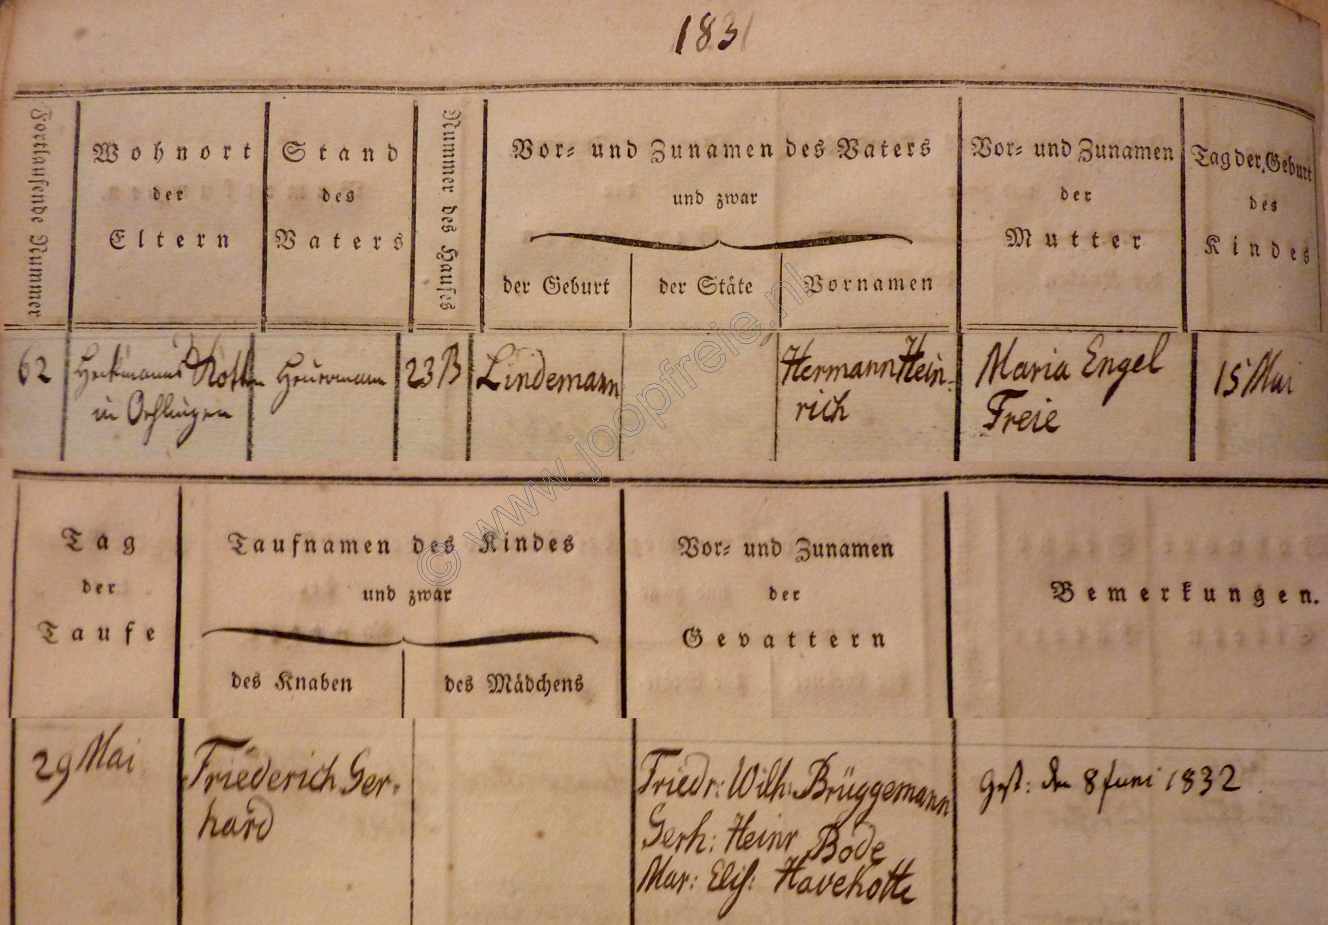 1831
Fortlaufende Nummer
Wohnort
der
Eltern
Stand
des
Vaters
Nummer des Hauses
Vor- und Zunamen des Vaters
und zwar
der Geburt
der Stäte
Vornamen
Vor- und Zunamen
der
Mutter
Tag der Geburt
des
Kindes
62
in Oehlingen
Heuermann
23B
Lindemann
Hermann Hein-
rich
Maria Engel
Freie
15 Mai
Tag
der
Taufe
Taufnamen des Kindes
und zwar
des Knaben
des Mädchens
Vor- und Zunamen
der
Gevattern
Bemerkungen.
29 Mai
Friederich Ger-
hard
Friedr: Wilh: Brüggemann
Gerh: Heinr Bode
Mar: Elis: Havekotte
Gest: den 8 Juni 1832
© www.joopfreie.nl